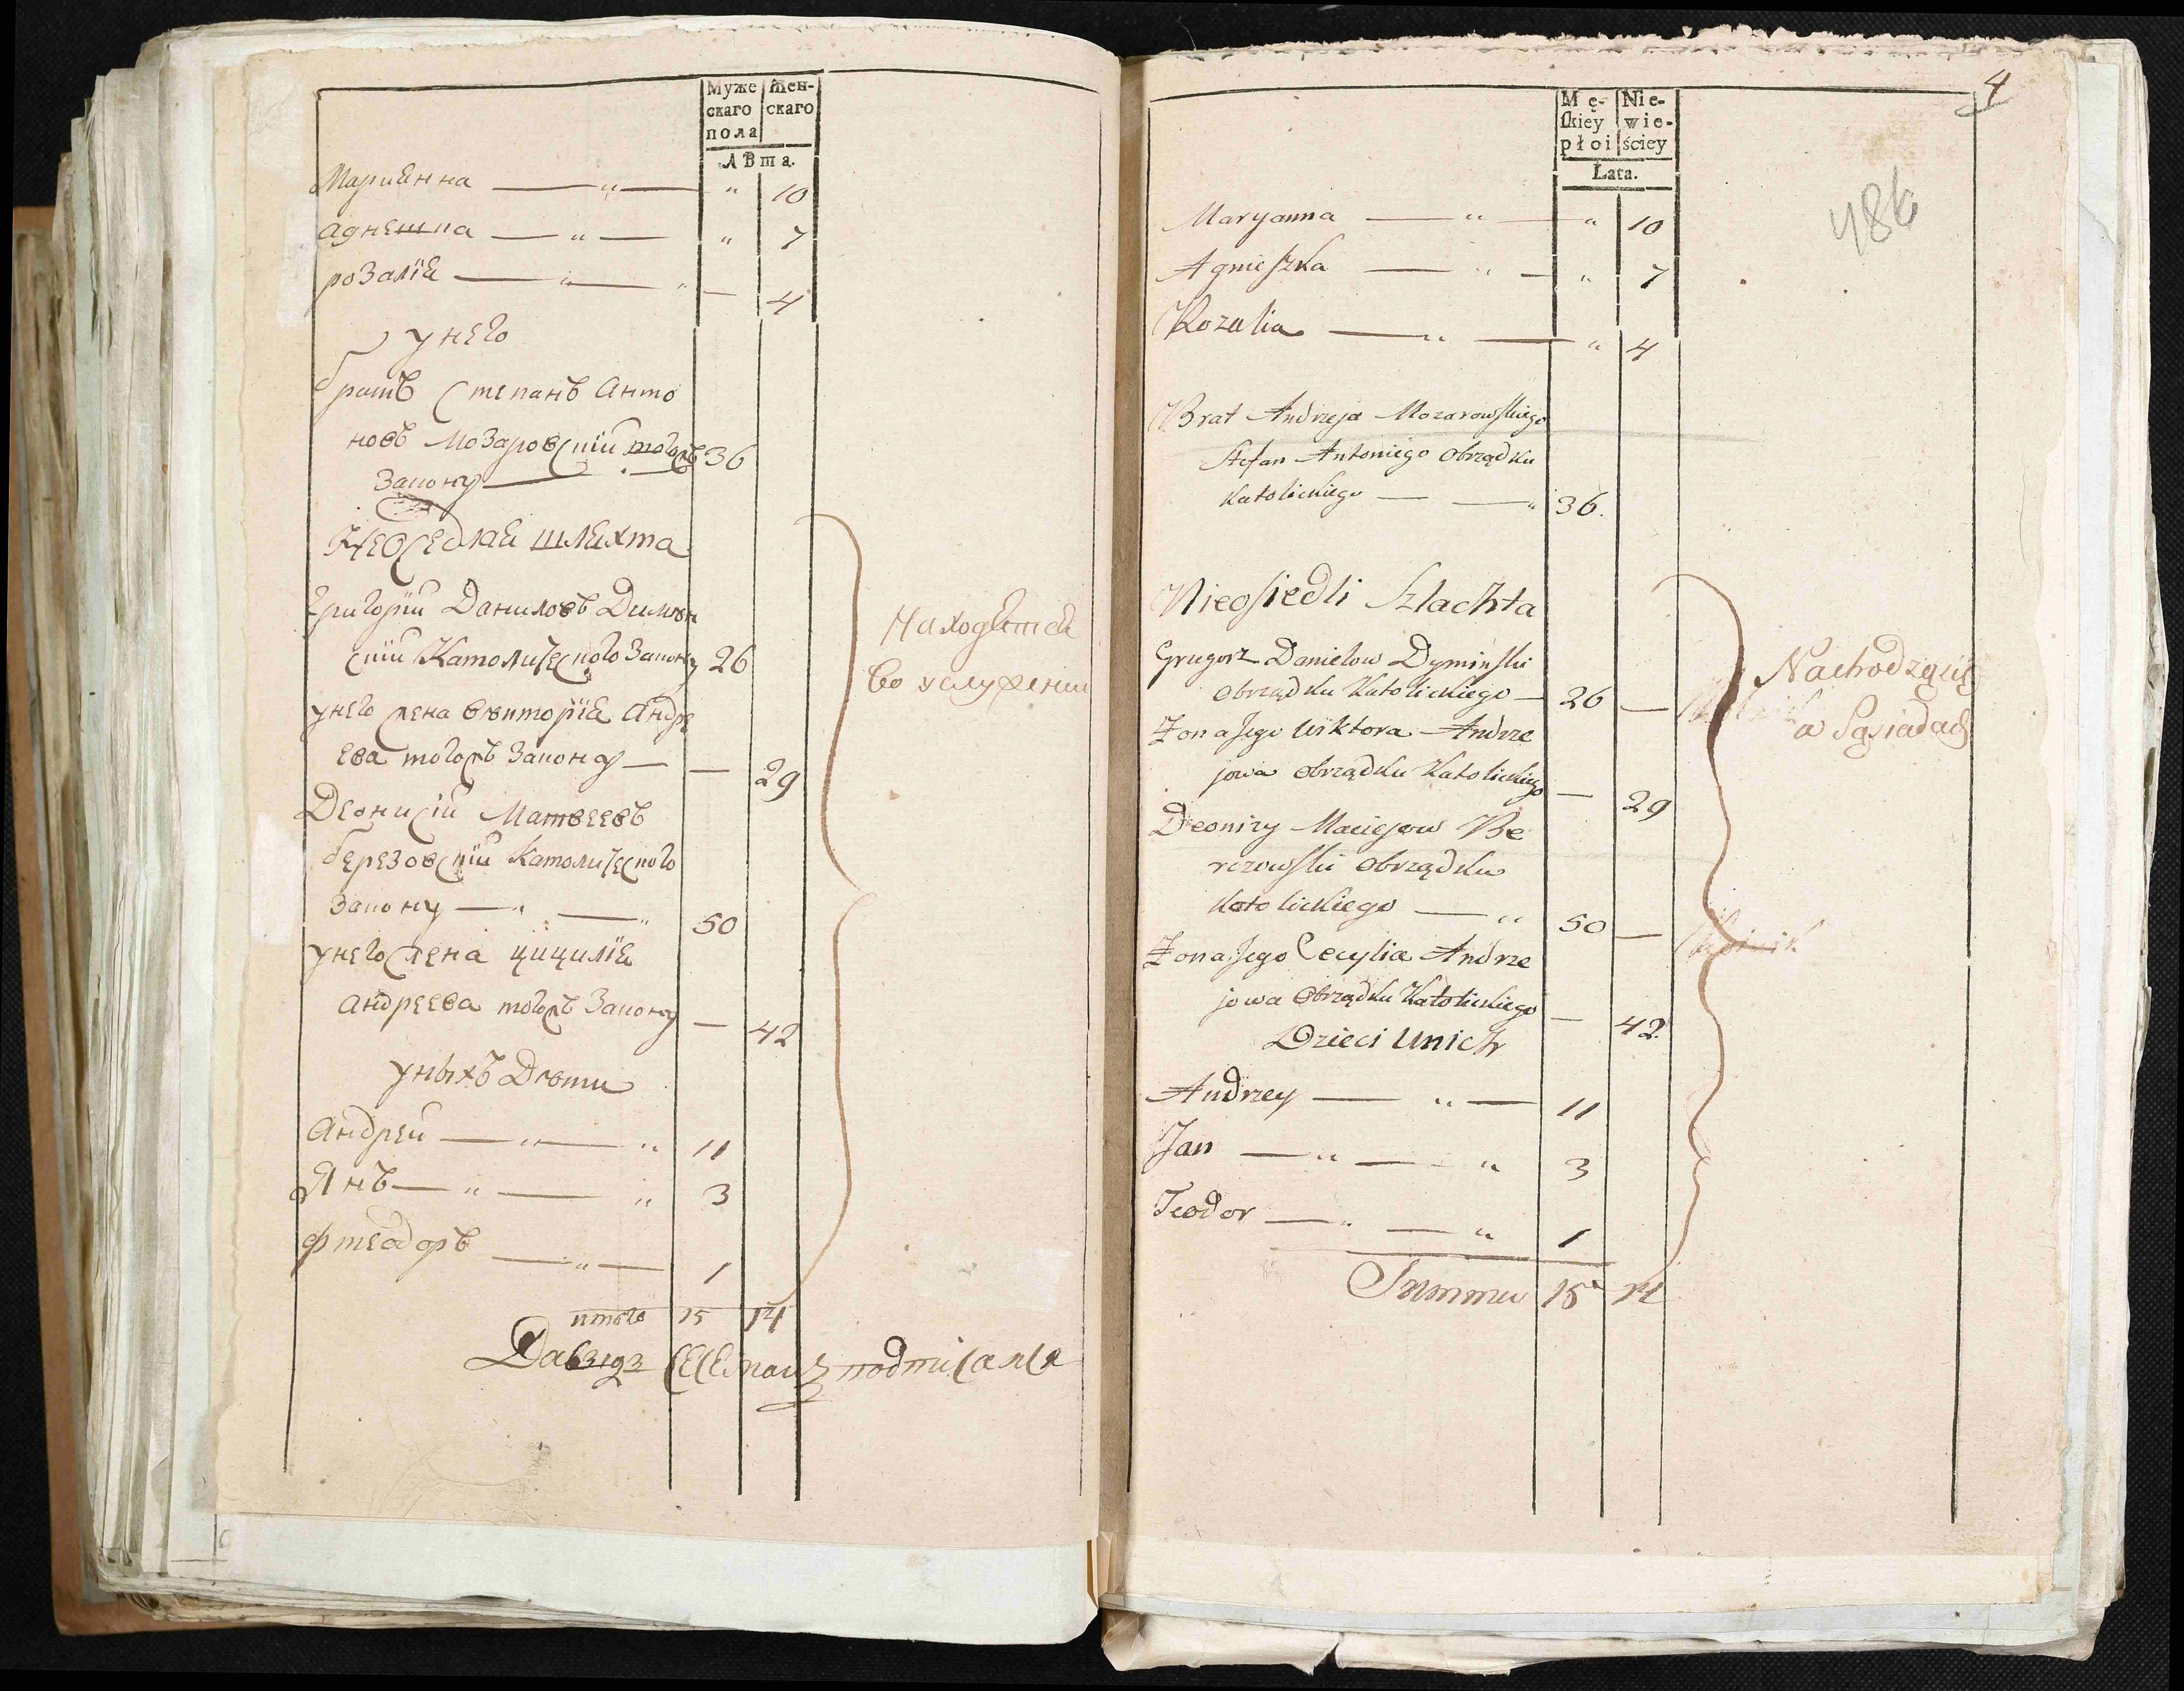 Муже скаго пола
Жен-скаго
лѣта.
Мариянна — „ — „ 10
агнешка — „ — „ 7
розалїя — „ — „ — 4
у него
братъ Степанъ Анто
новъ Мозаровскїй тогожъ 36
закону
Неоседлая шляхта
Григорїй Даниловъ Димѣн
скїй Католического Закону 26
у него жена виктория Андре
ева тогожъ Закону — — 29
Деонисїй Матвеевъ
березовскїй Католического
Закону — „ — „ 50
у него жена цицилїя
андреева тогожъ Закону — 42
у ныхъ Дѣти
Андрей — „ — „ 11
Янъ — „ — „ 3
Фтеодоръ — „ — 1
итого 15 14
Находятся
во услужении
4
486
Mę-skiey płoi
Nie-wie-ściey
Łata.
Maryanna — „ — „ 10
Agnieszka — „ — „ 7
Rozalia — „ — „ 4
Brat Andrzeja Mozarowskiego
Stefan Antoniego Obrządku
Katolickiego — — „ 36.
Nieosiedli Szlachta
Grzegorz Danielow Dyminski
Obrządku Katolickiego — 26 —
Żona Jego Wiktora Andrze
jowa Obrządku Katolickiego — 29
Deonizy Maciejow Be
rezowski Obrządku
Katolickiego — „ 50 —
Żona Jego Cecylia Andrze
jowa Obrządku Katolickiego — 42.
Dzieci U nich
Andrzey — „ — 11
Jan — „ — „ 3
Teodor — „ — „ 1
Summu 15 14
Nachodząsię
w Sąsiadach